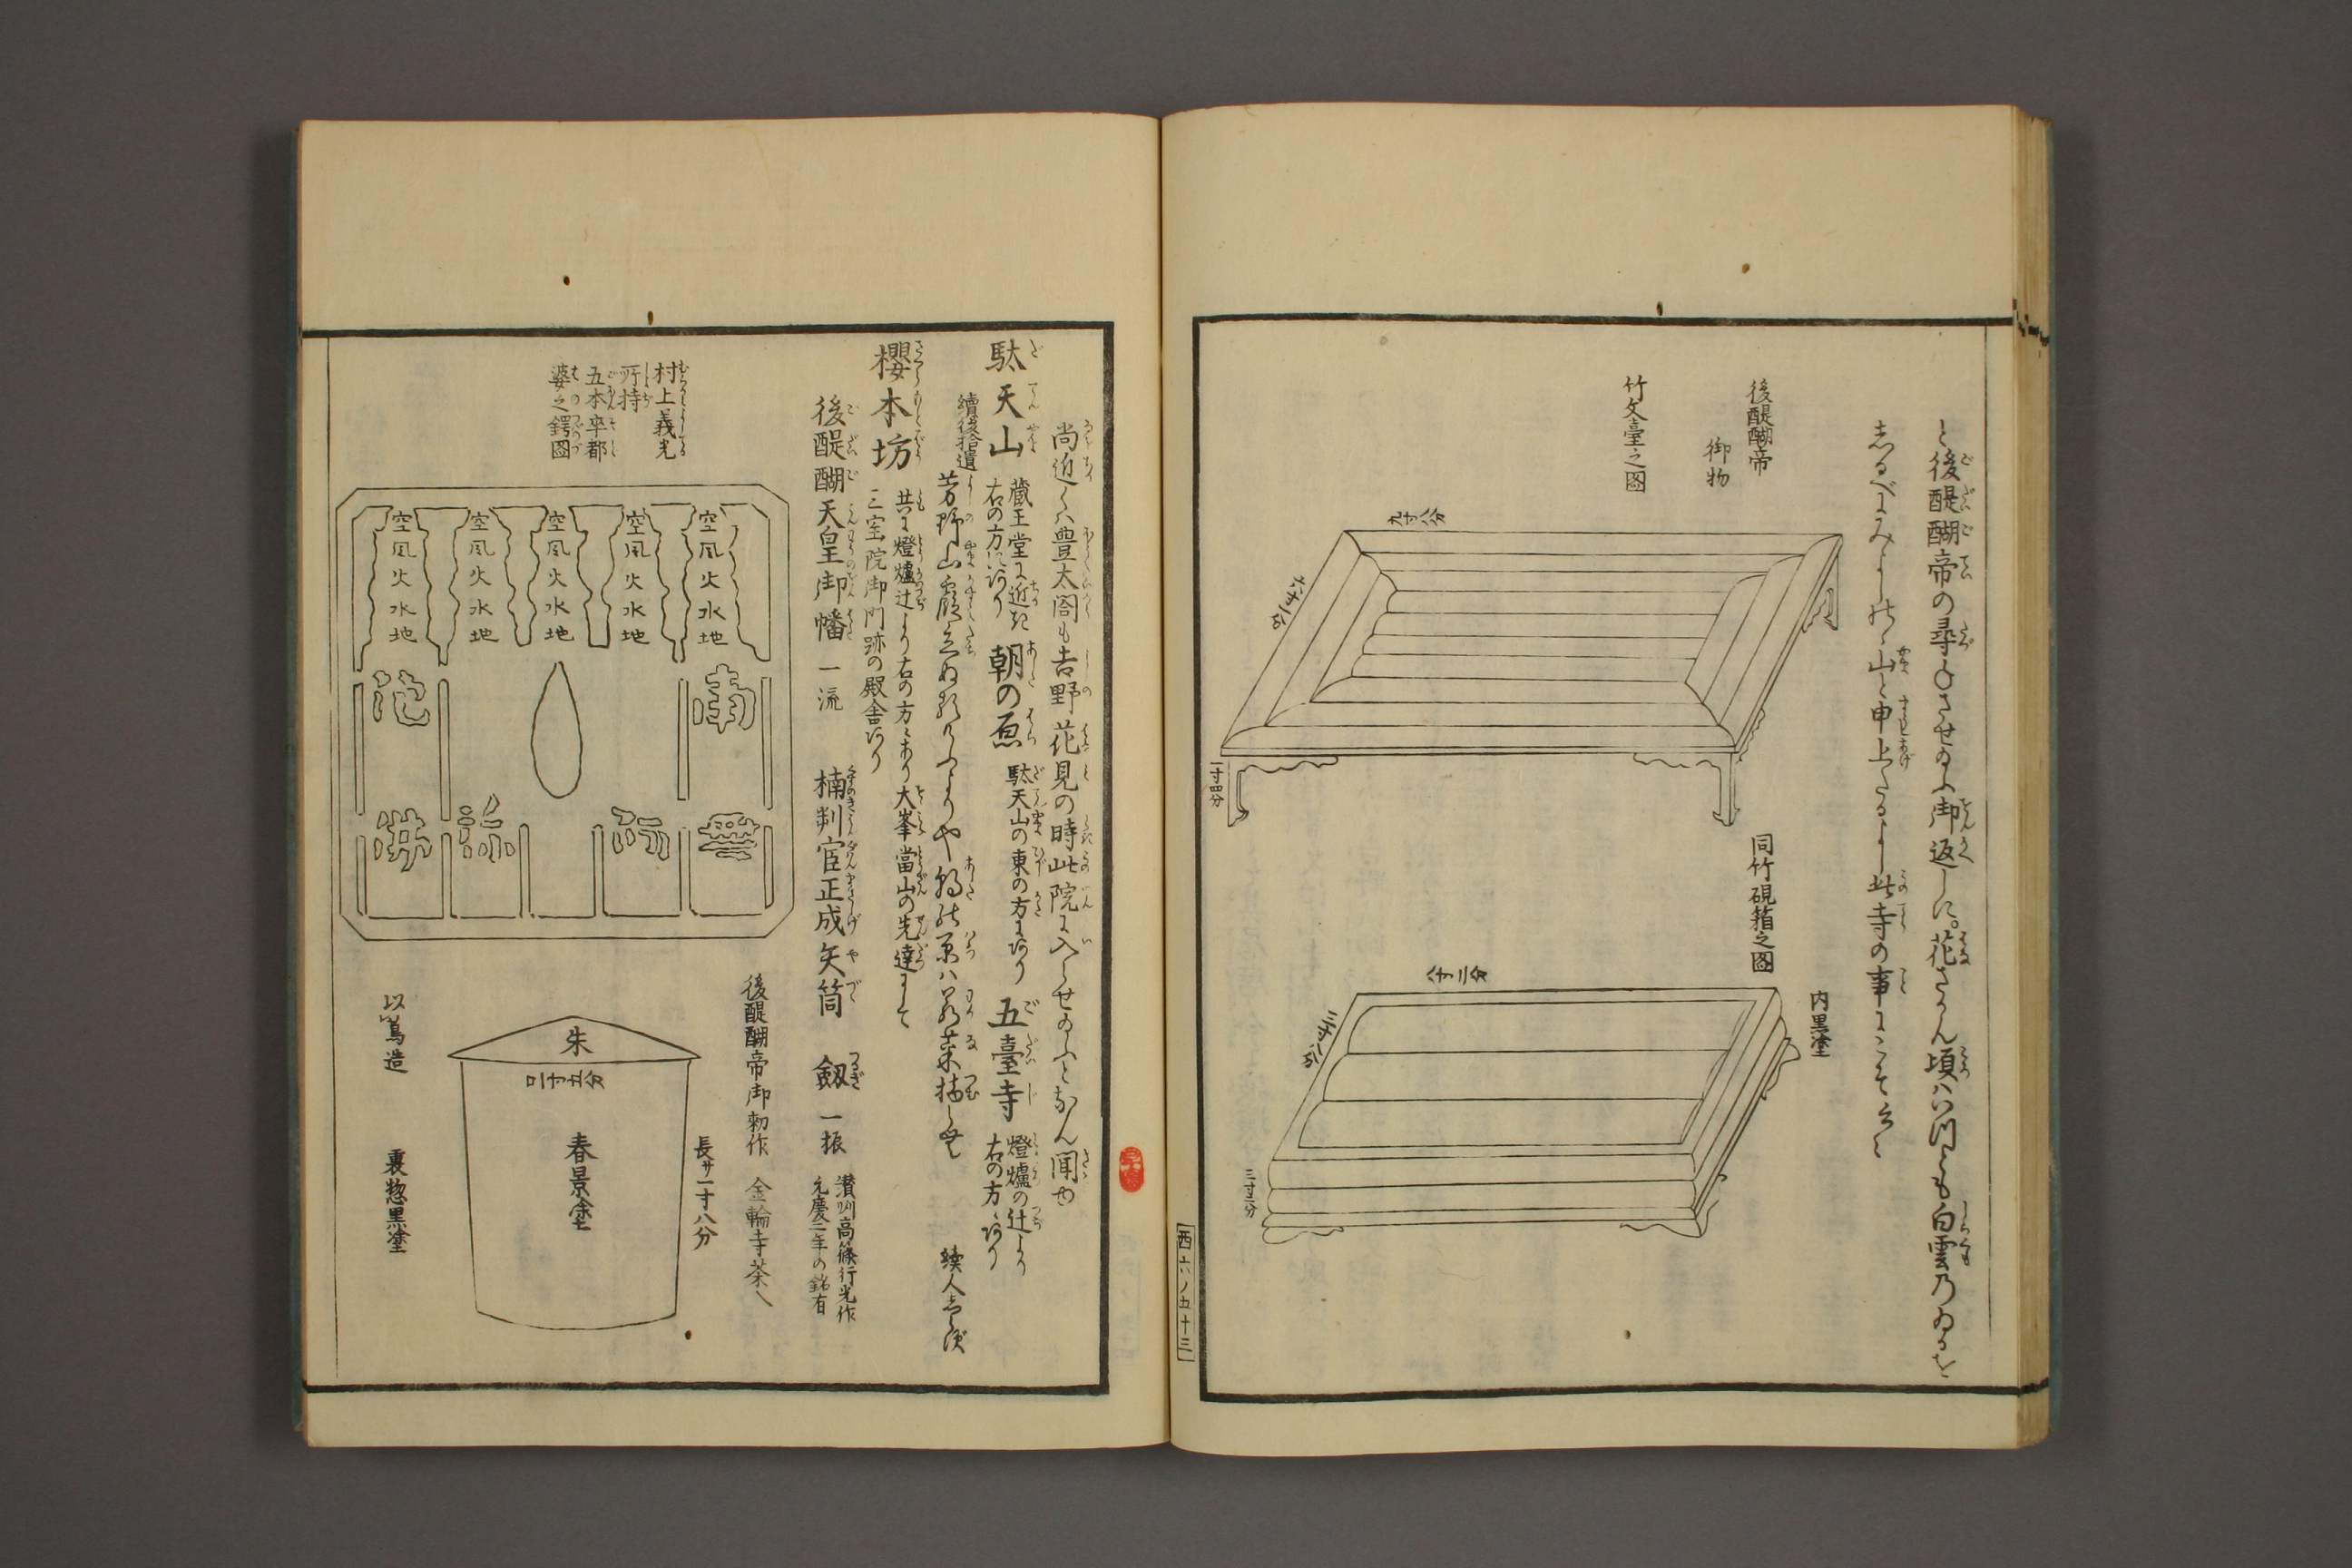 と後醍醐帝の尋させ給ふ御返しに。花さかん頃はいつとも白雲乃ゐるを
しるべにみよしのゝ山と申上たるよし此寺の事にこそ云々
後醍醐帝
御物
竹文臺之圖
九寸八分
一寸四分
同竹硯箱之圖
内黒塗
三寸二分
西六ノ五十三
尚近くは豊太閤も吉野花見の時此院に入らせ給ふとなん聞ゆ
駄天山
蔵王堂に近き
右の方にあり
朝の原
駄天山の東の方にあり
五臺寺
燈爐の辻より
右の方にあり
續後拾遺
芳野山霞立ぬるけふよりや朝の原は若菜摘らむ
櫻本坊
共に燈爐辻より右の方にあり大峯當山の先達にて
三宝院御門跡の殿舎あり
後醍醐天皇御幡
一流
楠判官正成矢筒
劔
一振
讃州高篠行光作
元慶二年の銘有
村上義光
所持
五本卒都
婆之鍔圖
空風火水地
空風火水地
空風火水地
空風火水地
空風火水地
南
無
阿
弥
陀
佛
後醍醐帝御勅作
金輪寺茶入
長サ一寸八分
朱
春景塗
以蔦造
裏惣黒塗